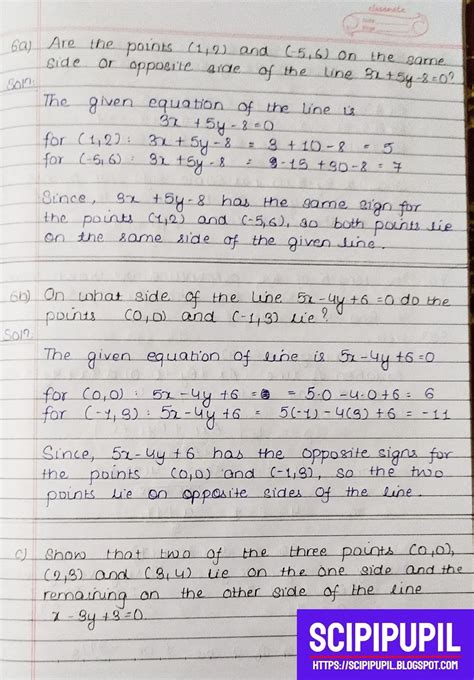 classmate
Date
Page
6a) Are the points (1,2) and (-5,6) on the same
side or opposite side of the line 3x+5y-8=0?
Soln.
The given equation of the line is
3x+5y-8=0
for (1,2): 3x+5y-8 = 3+10-8 = 5
for (-5,6): 3x+5y-8 = -15+30-8 = 7
Since, 3x+5y-8 has the same sign for
the points (1,2) and (-5,6), so both points lie
on the same side of the given line.
6b) On what side of the line 5x-4y+6=0 do the
points (0,0) and (-1,3) lie?
Soln.
The given equation of line is 5x-4y+6=0
for (0,0): 5x-4y+6 = = 5·0-4·0+6 = 6
for (-1,3): 5x-4y+6 = 5(-1)-4(3)+6 = -11
Since, 5x-4y+6 has the opposite signs for
the points (0,0) and (-1,3), so the two
points lie on opposite sides of the line.
c) Show that two of the three points (0,0),
(2,3) and (3,4) lie on the one side and the
remaining on the other side of the line
x-3y+3=0.
SCIPIPUPIL
HTTPS://SCIPIPUPIL.BLOGSPOT.COM